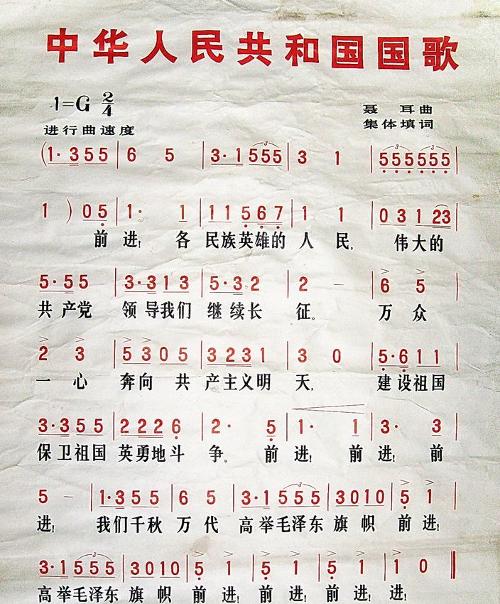 中华人民共和国国歌
1=G 2/4
进行曲速度
聂 耳曲
集体填词
(1· 3 5 5 | 6 5 | 3· 1 5 5 5 | 3 1 | 5 5 5 5 5 5 |
1 ) 0 5 | 1· 1 | 1 1 5 6 7 | 1 1 | 0 3 1 2 3 |
前 进! 各 民族英雄的 人 民, 伟大的
5· 5 5 | 3· 3 1 3 | 5· 3 2 | 2 – | 6 5 |
共 产党 领 导我们 继 续长 征。 万 众
2 3 | 5 3 0 5 | 3 2 3 1 | 3 0 | 5· 6 1 1 |
一 心 奔向 共 产主义明 天, 建 设祖国
3· 3 5 5 | 2 2 2 6 | 2· 5 | 1· 1 | 3· 3 |
保 卫祖国 英勇地斗 争。 前 进! 前 进! 前
5 – | 1· 3 5 5 | 6 5 | 3· 1 5 5 5 | 3 0 1 0 | 5 1 |
进! 我 们千秋 万 代 高 举毛泽东 旗 帜 前 进!
3· 1 5 5 5 | 3 0 1 0 | 5 1 | 5 1 | 5 1 | 1 0 ‖
高 举毛泽东 旗 帜 前 进! 前 进! 前 进! 进!